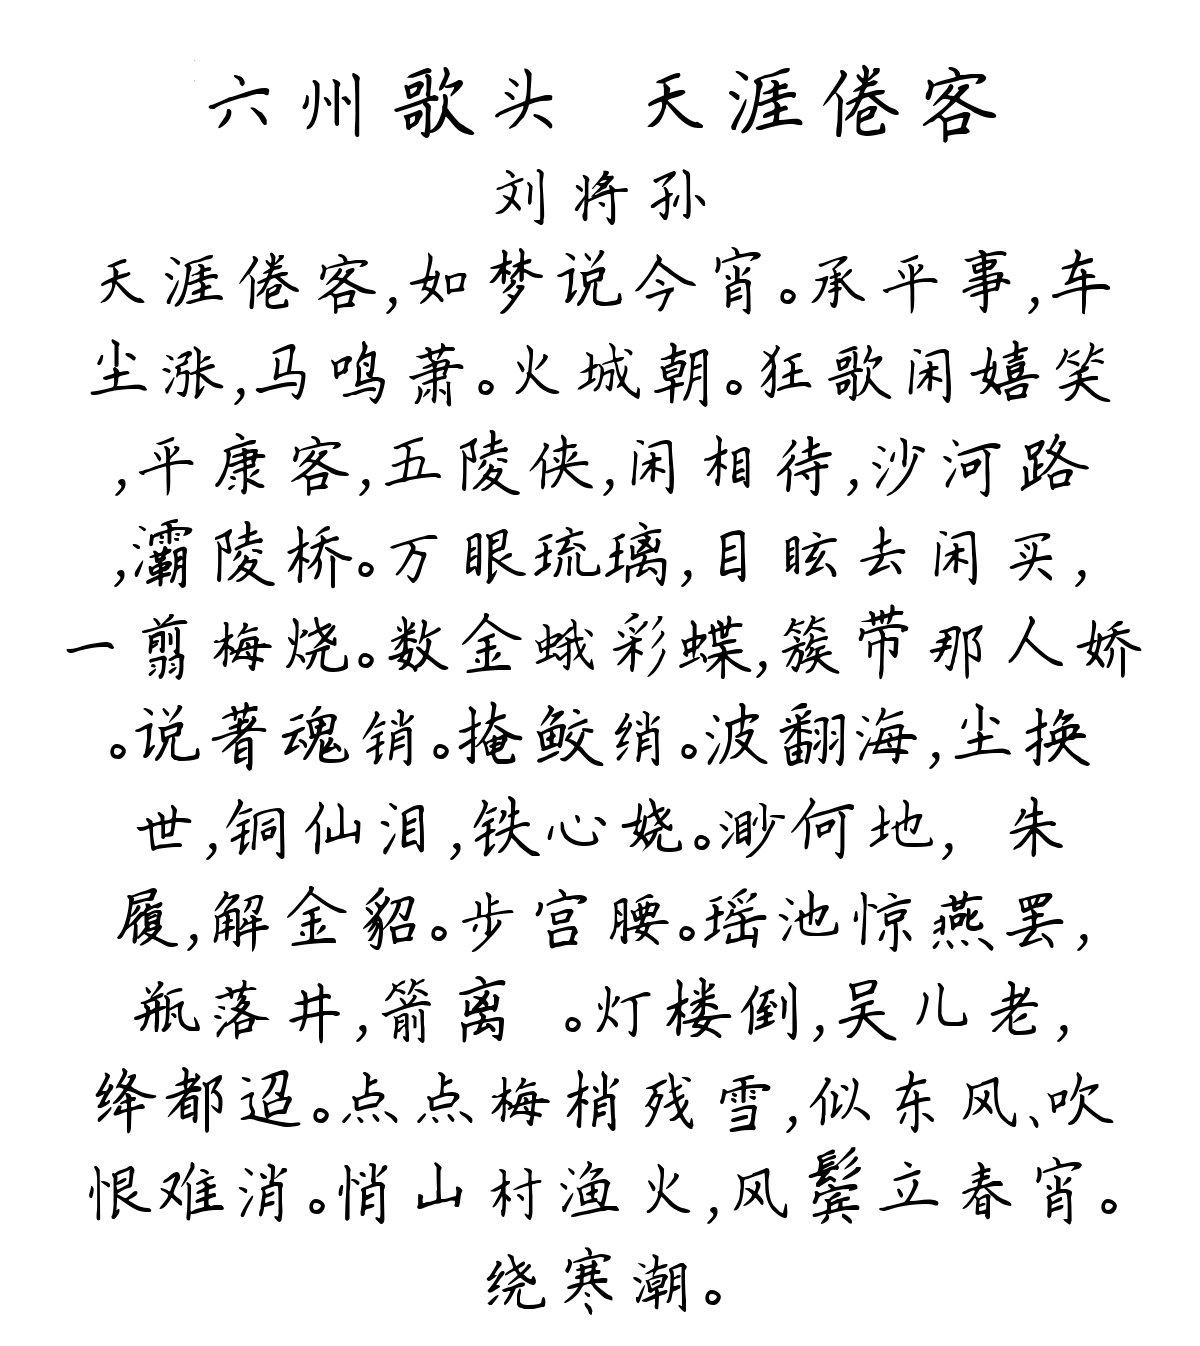 六州歌头 天涯倦客
刘将孙
天涯倦客,如梦说今宵。承平事,车
尘涨,马鸣萧。火城朝。狂歌闲嬉笑
,平康客,五陵侠,闲相待,沙河路
,灞陵桥。万眼琉璃,目眩去闲买,
一剪梅烧。数金蛾彩蝶,簇带那人娇
。说著魂销。掩鲛绡。波翻海,尘换
世,铜仙泪,铁心娆。渺何地, 朱
履,解金貂。步宫腰。瑶池惊燕罢,
瓶落井,箭离 。灯楼倒,吴儿老,
绛都迢。点点梅梢残雪,似东风、吹
恨难消。悄山村渔火,风鬓立春宵。
绕寒潮。